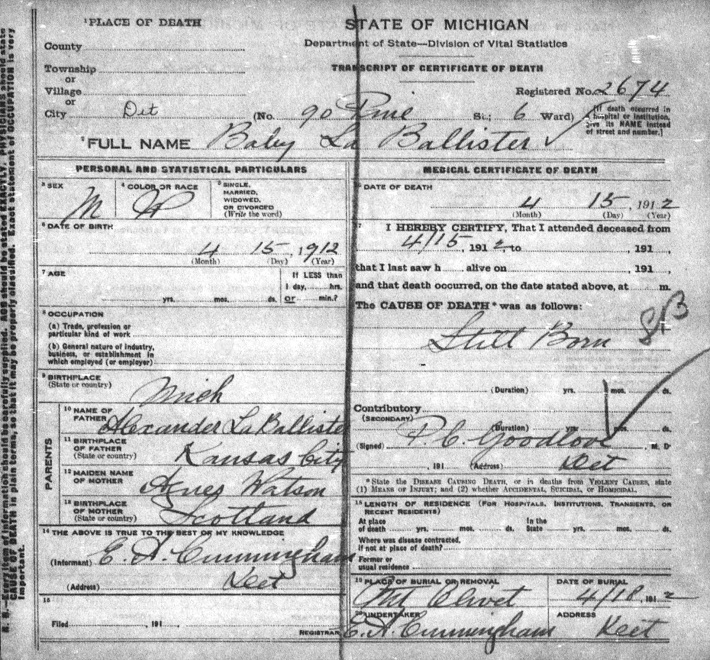 PLACE OF DEATH
STATE OF MICHIGAN
County
Department of State—Division of Vital Statistics
Township
or
TRANSCRIPT OF CERTIFICATE OF DEATH
Village
or
Registered No. 2674
City Det (No. 90 Pine St.; 6 Ward)
[If death occurred in
hospital or institution,
give its NAME instead
of street and number.]
FULL NAME Baby La Ballister
PERSONAL AND STATISTICAL PARTICULARS
3 SEX M
4 COLOR OR RACE W
5 SINGLE,
MARRIED,
WIDOWED,
OR DIVORCED
(Write the word)
6 DATE OF BIRTH
4 15, 1912
(Month) (Day) (Year)
7 AGE
If LESS than
1 day, hrs.
yrs. mos. ds. or min.?
8 OCCUPATION
(a) Trade, profession or
particular kind of work
(b) General nature of industry,
business, or establishment in
which employed (or employer)
9 BIRTHPLACE
(State or country) Mich
PARENTS
10 NAME OF
FATHER Alexander La Balliste
11 BIRTHPLACE
OF FATHER
(State or country) Kansas City
12 MAIDEN NAME
OF MOTHER Agnes Watson
13 BIRTHPLACE
OF MOTHER
(State or country) Scotland
14 THE ABOVE IS TRUE TO THE BEST OF MY KNOWLEDGE
(Informant) E. A. Cunningham
(Address) Det
15
Filed , 191
REGISTRAR
MEDICAL CERTIFICATE OF DEATH
16 DATE OF DEATH
4 15, 1912
(Month) (Day) (Year)
17 I HEREBY CERTIFY, That I attended deceased from
4/15, 1912, to , 191
that I last saw h alive on , 191
and that death occurred, on the date stated above, at m.
The CAUSE OF DEATH* was as follows:
SB
Still Born
(Duration) yrs. mos. ds.
Contributory
(SECONDARY)
(Duration) yrs. mos. ds.
(Signed) P. C. Goodlove M. D.
, 191 (Address) Det
*State the DISEASE CAUSING DEATH, or in deaths from VIOLENT CAUSES, state
(1) MEANS OF INJURY; and (2) whether ACCIDENTAL, SUICIDAL, OR HOMICIDAL.
18 LENGTH OF RESIDENCE (FOR HOSPITALS, INSTITUTIONS, TRANSIENTS, OR
RECENT RESIDENTS)
At place In the
of death yrs. mos. ds. State yrs. mos. ds.
Where was disease contracted,
if not at place of death?
Former or
usual residence
19 PLACE OF BURIAL OR REMOVAL
DATE OF BURIAL
Mt Olivet 4/18, 1912
20 UNDERTAKER
ADDRESS
E. A. Cunningham Det